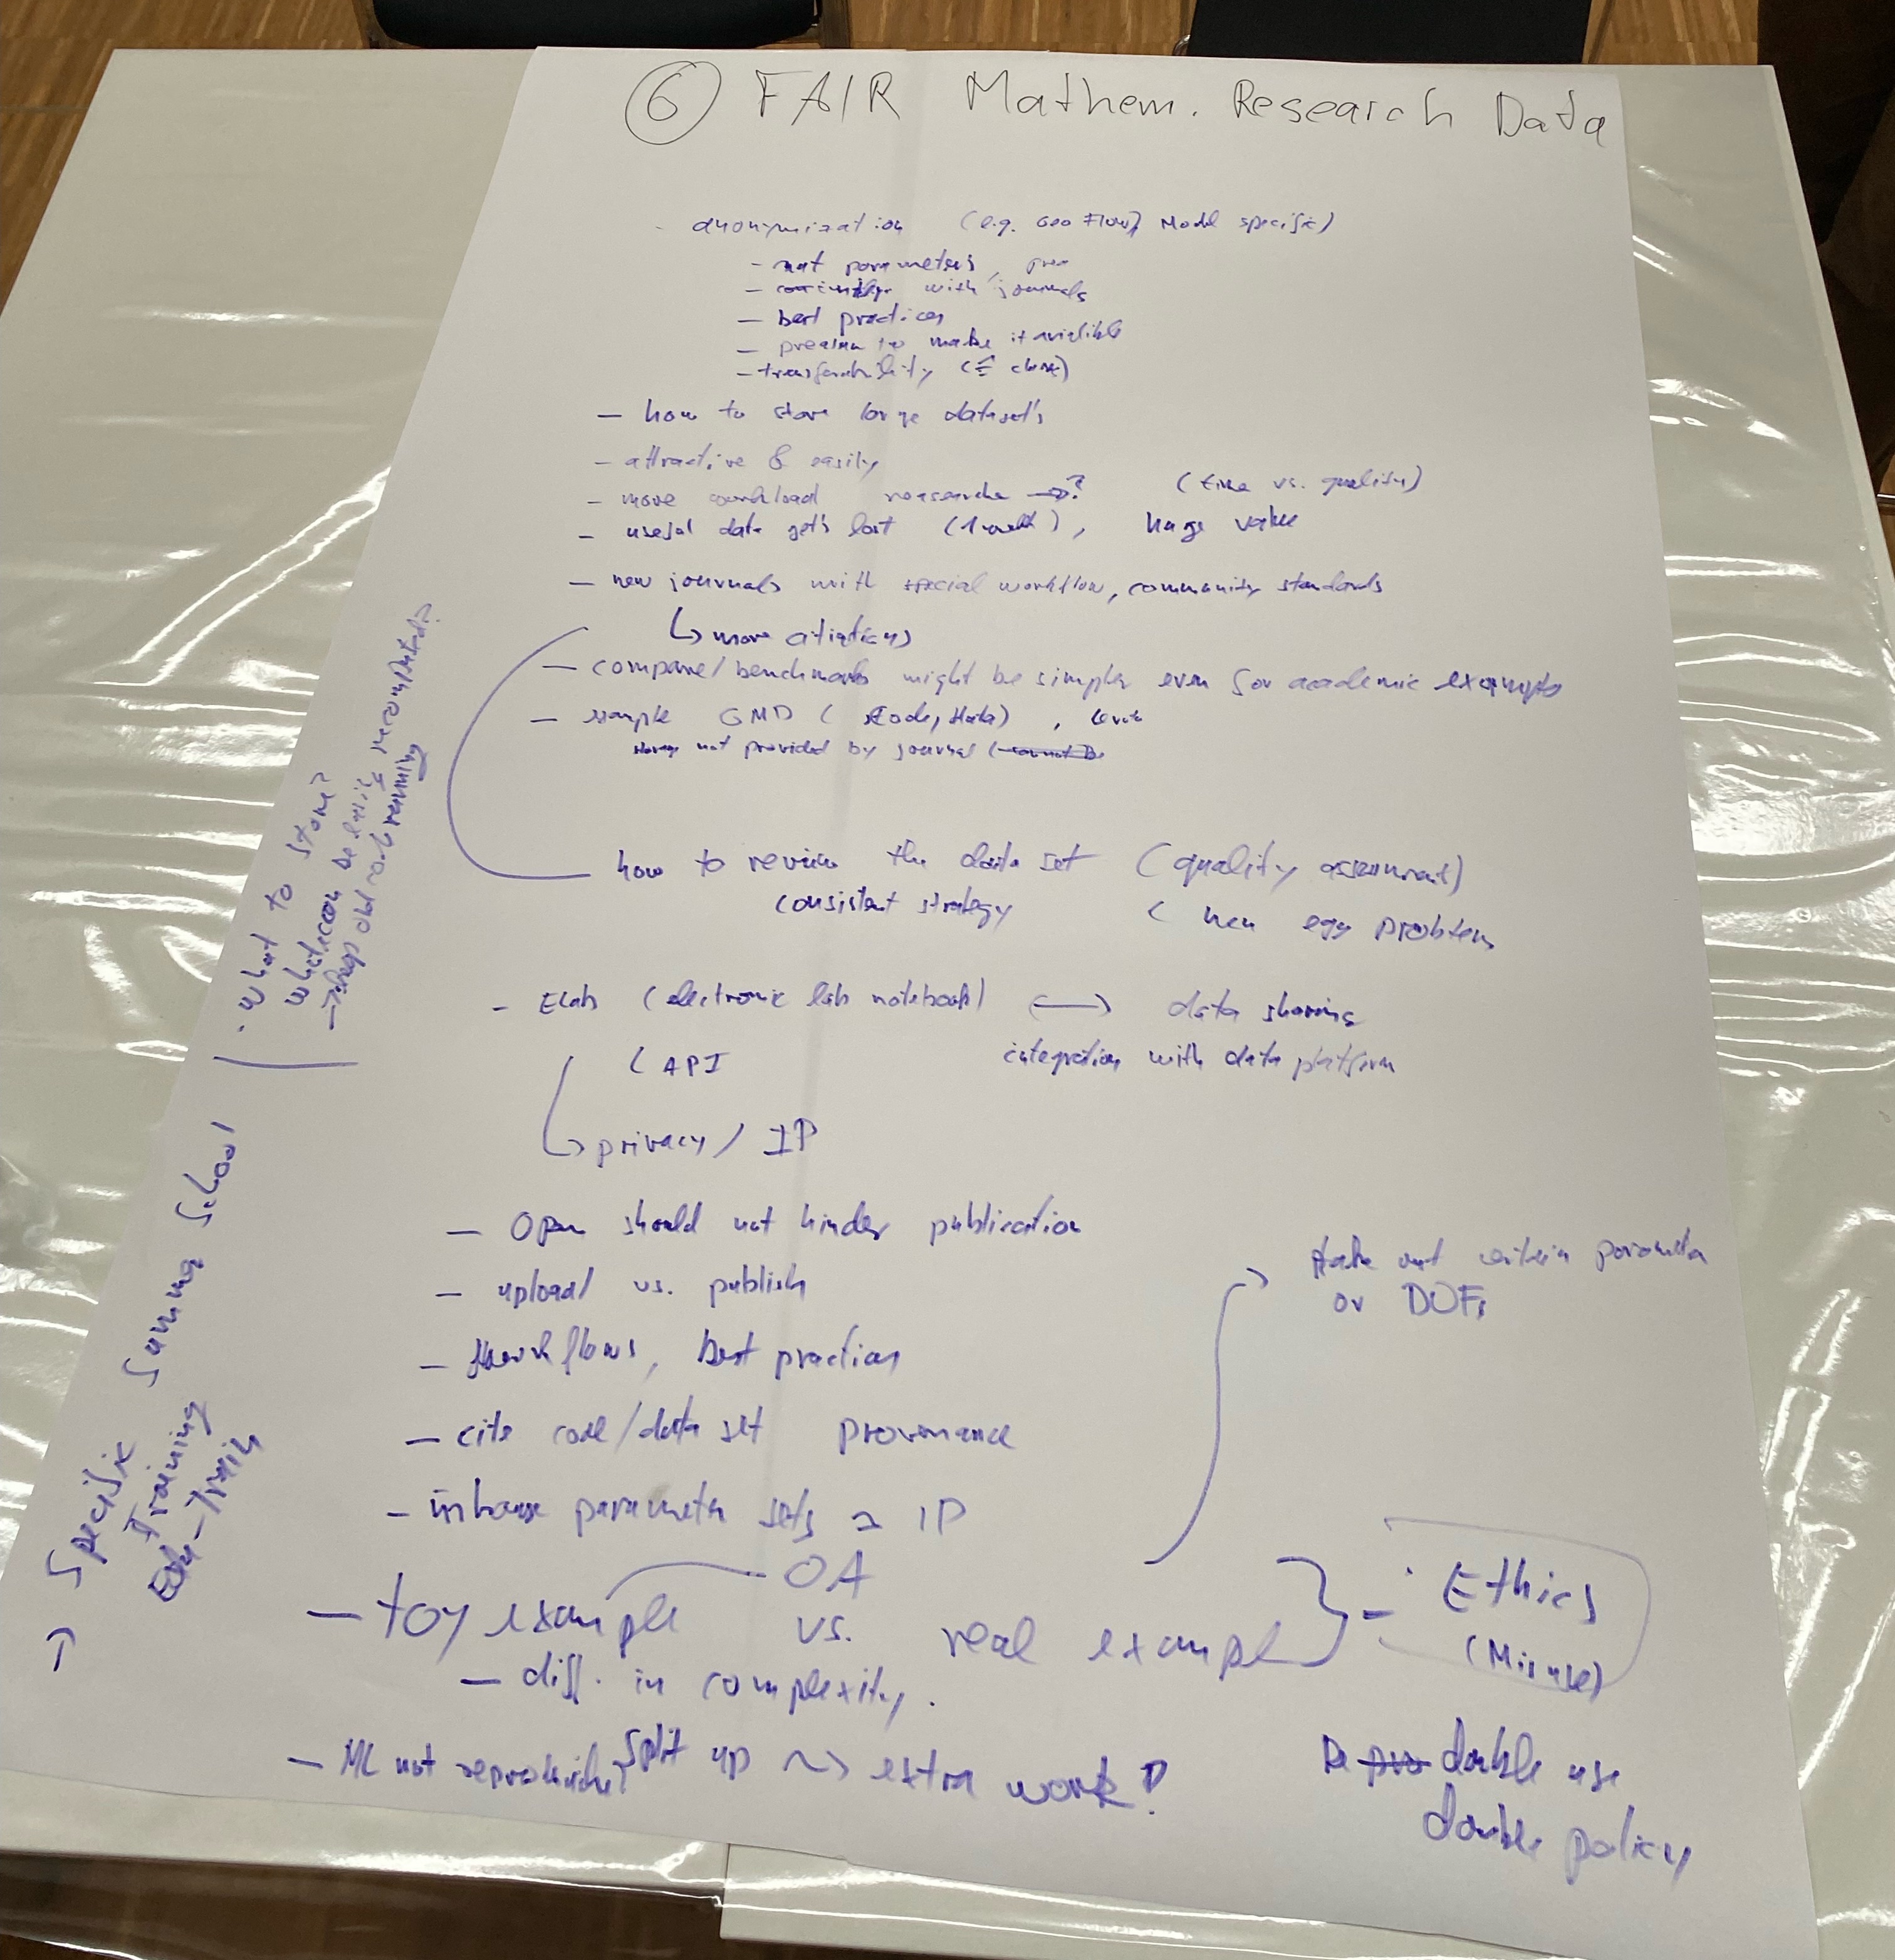 6 FAIR Mathem. Research Data
- anonymization (e.g. Geo Flow, Model specific)
- not parameters,
- with journals
- best practices
- to make it
- transferability
- how to store large dataset's
- attractive & easily
- more workload → ? (time vs. quality)
- useful data get's lost , huge value
- new journals with special workflow, community standards
↳ more
- compare/benchmarks might be simpler even for academic examples
- example GMD ( code, data) ,
not provided by journal
how to review the data set (quality assessment)
consistent strategy ( hen egg problem
- ELab (electronic lab notebook) ⟷ data sharing
( API integration with data platform
↳ privacy / IP
- Open should not hinder publication
- upload vs. publish
- workflows, best practices
- cite code/data set provenance
- inhouse parameter sets = IP
→ take out certain parameter
or DOFs
- toy example OA vs. real example } - Ethics
(Misuse)
- diff. in complexity.
- ML not split up ~> extra work?
double use
double policy
· What to store?
what can be easily recomputed?
→ keep old code running
→ Specific Summer School
Training
Edu-Train